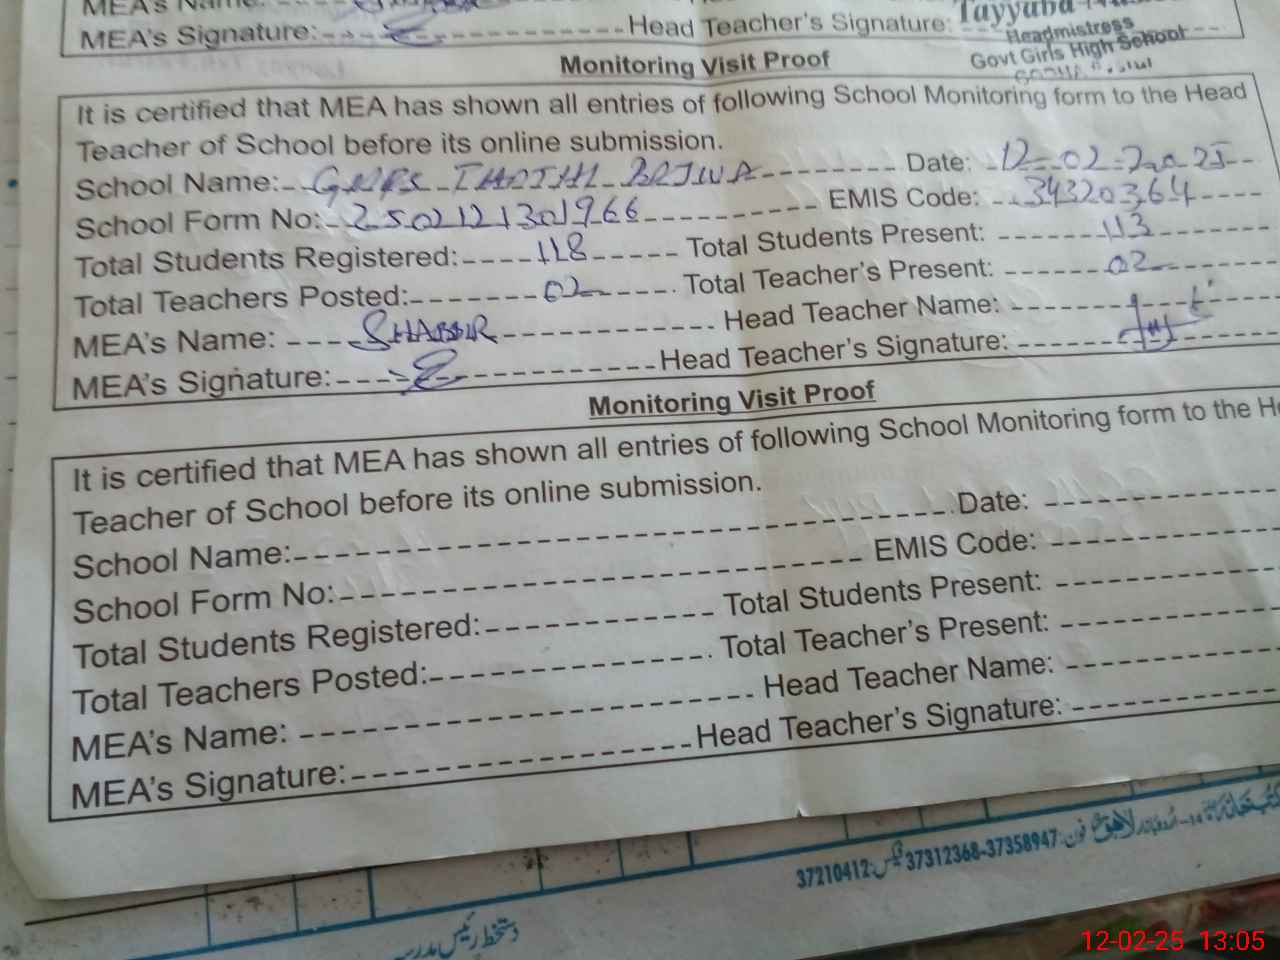 MEA's Name:
MEA's Signature: Head Teacher's Signature:
Tayyaba
Headmistress
Govt Girls High School
Monitoring Visit Proof
It is certified that MEA has shown all entries of following School Monitoring form to the Head
Teacher of School before its online submission.
School Name: Date: 12-02-2025
School Form No: 2502121301966 EMIS Code: 34320364
Total Students Registered: 118 Total Students Present: 113
Total Teachers Posted: 02 Total Teacher's Present: 02
MEA's Name: SHABBIR Head Teacher Name:
MEA's Signature: Head Teacher's Signature:
Monitoring Visit Proof
It is certified that MEA has shown all entries of following School Monitoring form to the
Teacher of School before its online submission.
School Name: Date:
School Form No: EMIS Code:
Total Students Registered: Total Students Present:
Total Teachers Posted: Total Teacher's Present:
MEA's Name: Head Teacher Name:
MEA's Signature: Head Teacher's Signature:
لاہور فون: 37312368-37358947 فیکس: 37210412
دستخط رئیس مدرسہ
12-02-25 13:05